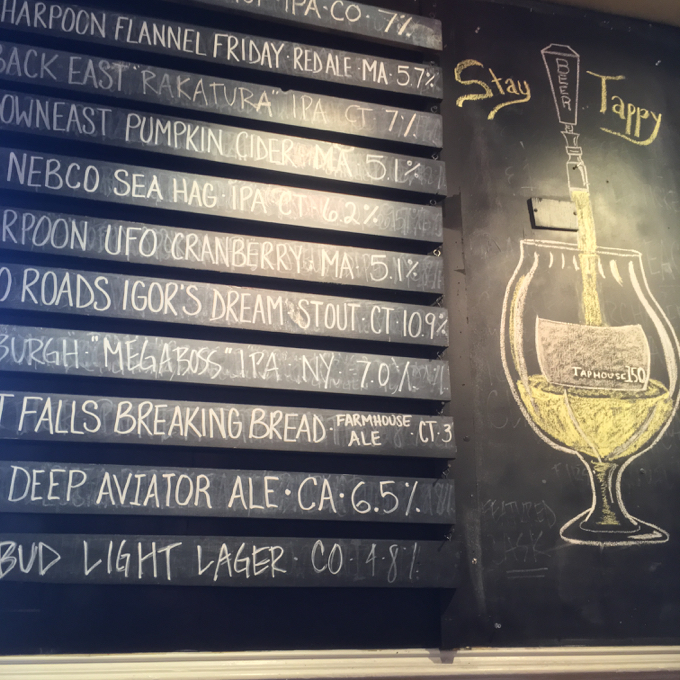 IPA · CO · 7%
HARPOON FLANNEL FRIDAY · RED ALE · MA · 5.7%
BACK EAST "RAKATURA" IPA CT 7%
OWNEAST PUMPKIN CIDER MA · 5.1%
NEBCO SEA HAG · IPA CT · 6.2%
RPOON UFO CRANBERRY · MA · 5.1%
O ROADS IGOR'S DREAM · STOUT · CT · 10.9%
BURGH · "MEGABOSS" IPA · NY · 7.0%
T FALLS BREAKING BREAD · FARMHOUSE ALE · CT · 3
DEEP AVIATOR ALE · CA · 6.5%
BUD LIGHT LAGER · CO · 4.8%
Stay Tappy
BEER
TAPHOUSE 150